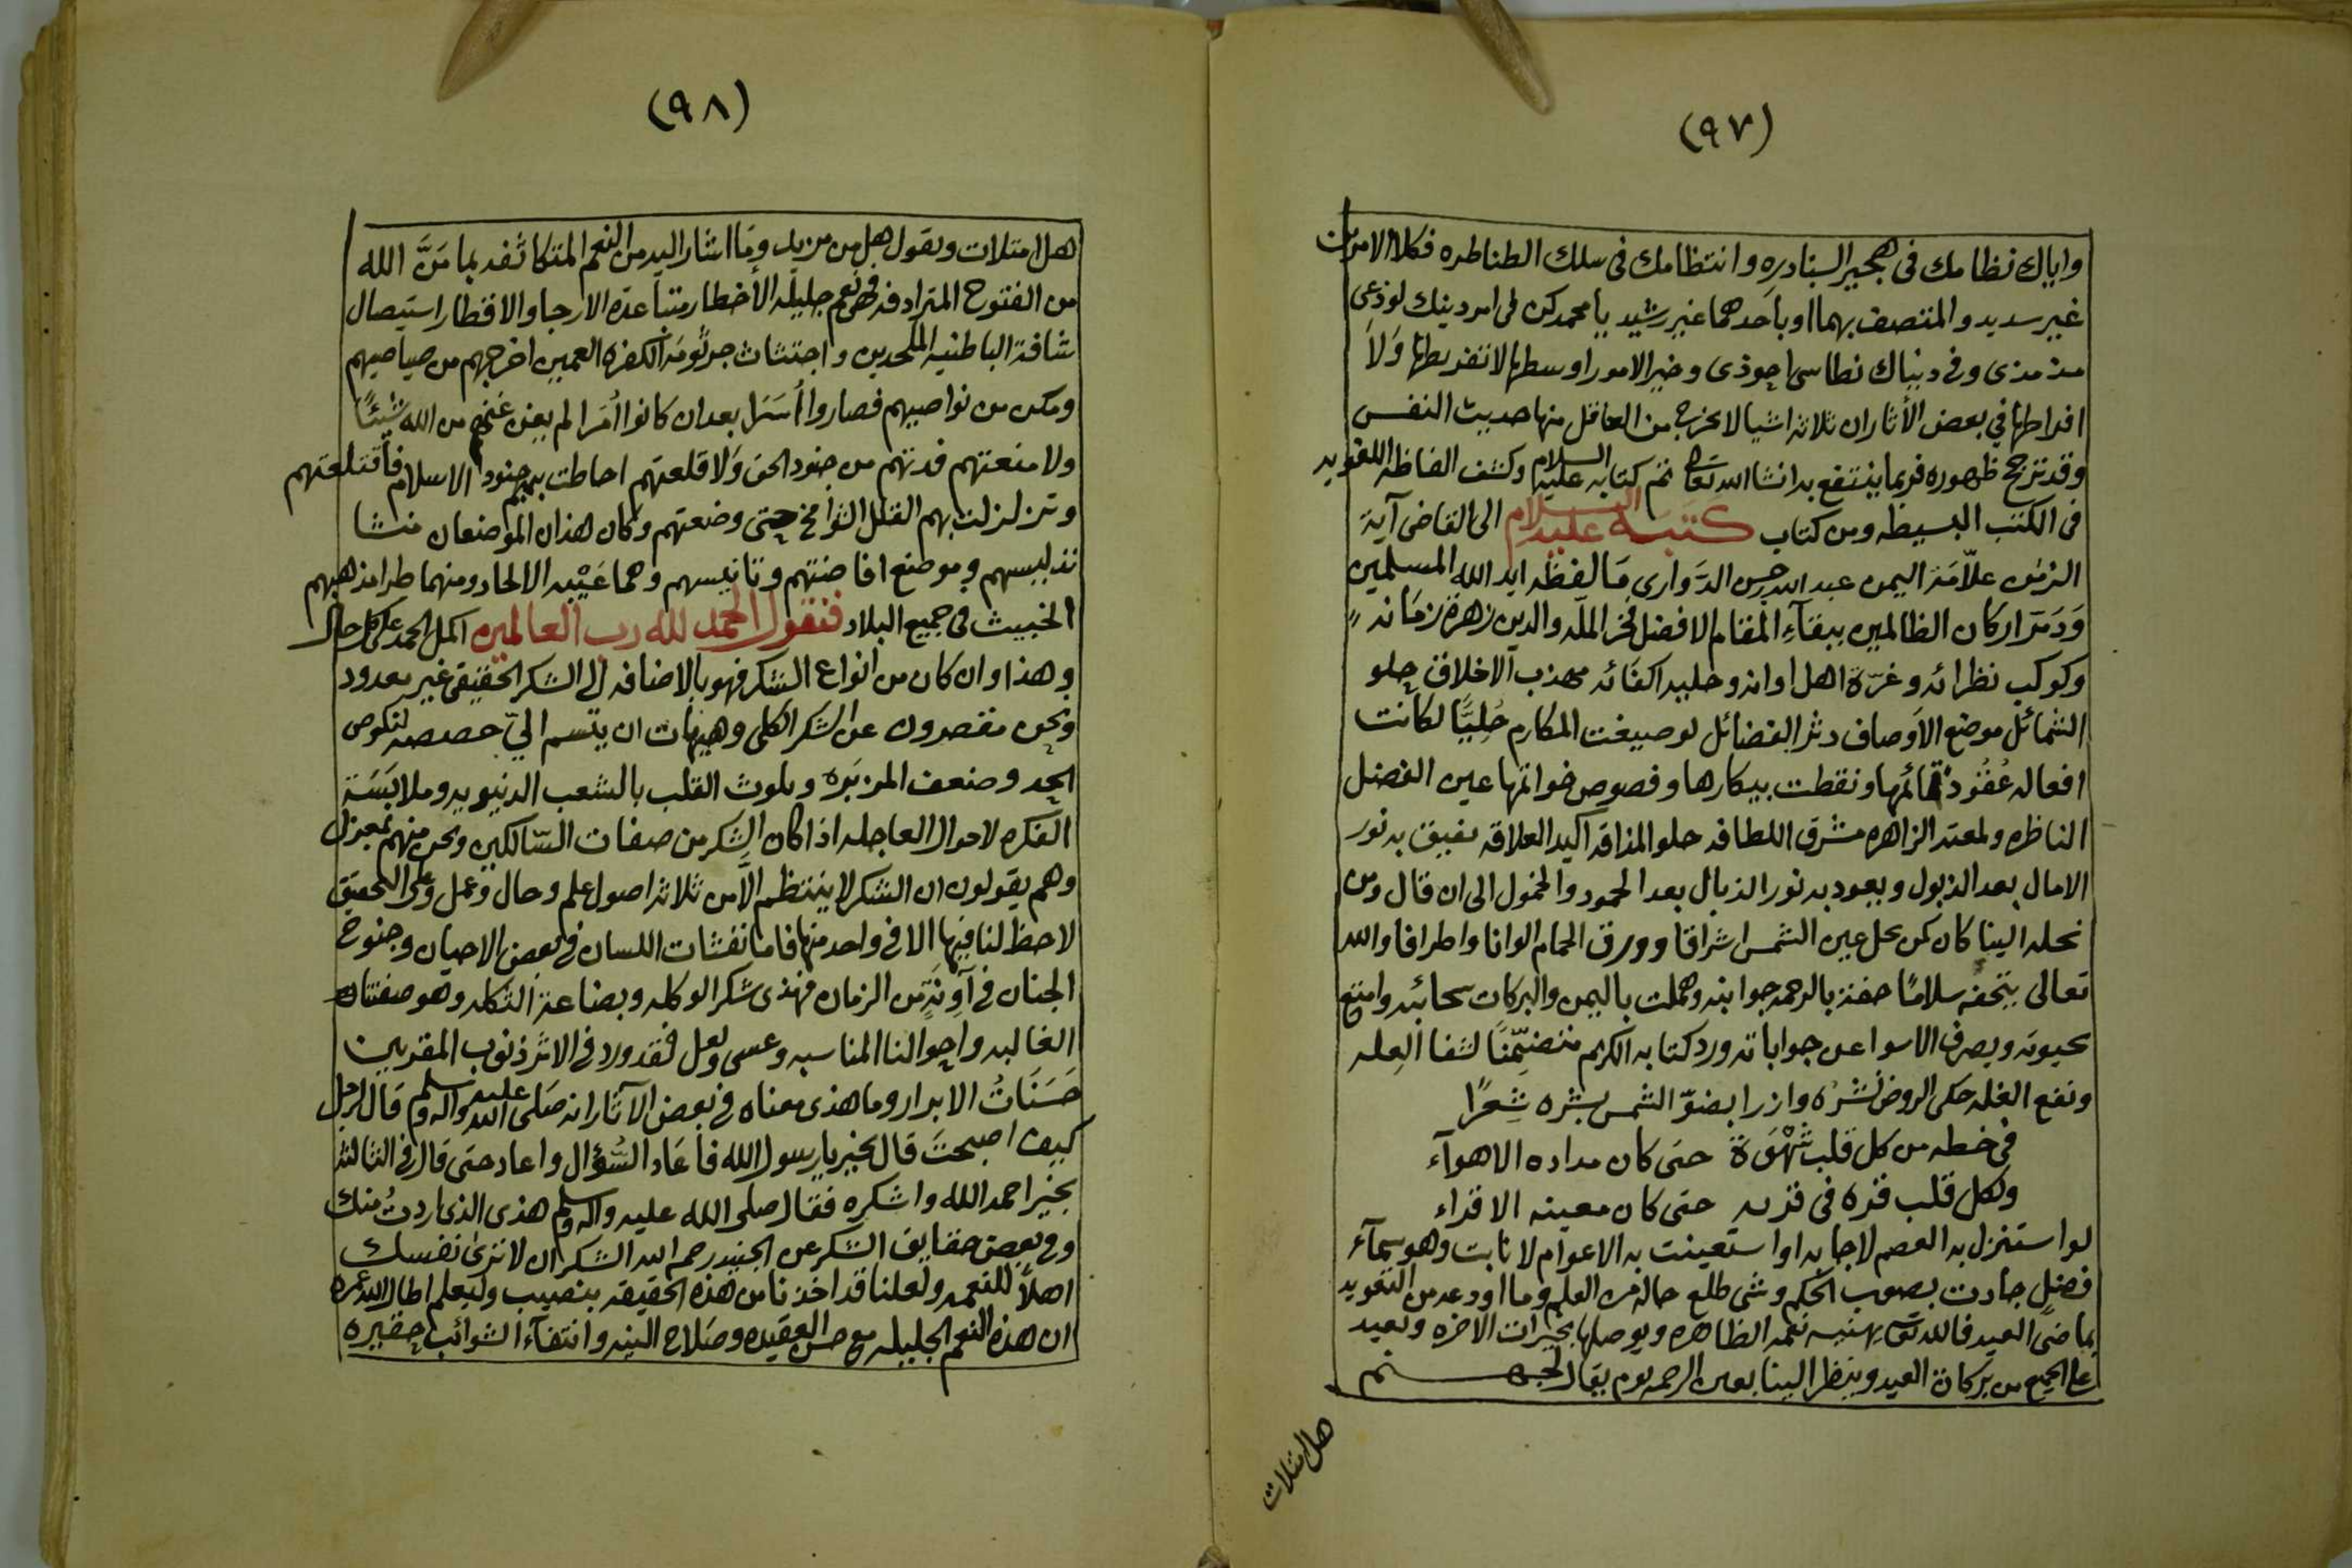 (٩٧)
واياك نظامك فى هجير السنادره وانتظامك فى سلك الطناطره فكلا الامرين
غير سديد والمتصف بهما او باحدهما غير رشيد يا محمد كن لى امر دينك لوذعى
وفى دنياك نطاسى احوذى وخير الامور اوسطها لا تفريطها وَلاَ
افراطها في بعض الأثار ان ثلاثه اشيا لا يخرج من العاقل منها حديث النفس
وقد ترجح ظهوره فربما ينتفع به انشا الله تعا تم كتابه عليه السلام وكشف الفاظه اللغويه
فى الكتب البسيطه ومن كتاب كتبه عليه السلام الى القاضى آية
الزمن علاّمة اليمن عبد الله بن حسن الدَّوارى مَا لفظه ايد الله المسلمين
وَدَمّر اركان الظالمين ببقآءِ المقام الافضل فخر الملّه والدين زهرة زمَانه
وكوكب نظرائه وغرّة اهل اوانه وحلية اكفائه مهذب الاخلاق حلو
الشمائل موضع الاَوصاف دثر الفضائل لو صيغت المكارم حُلِيًّا لكانت
افعاله عُقُود تمائمها ونقطت بيكارها وفصوص خواتمها عين الفضل
الناظره ولمعته الزاهره مشرق اللطافه حلو المذاقه اكيد العلاقه يفيق به نور
الامال بعد الذبول ويعود به نور الذبال بعد الخمود والخمول الى ان قال ومن
نحله الينا كان كمن نحل عين الشمس اشراقا وورق الحمام الوانا واطرافا والله
تعالى يتحفه سلامًا حفته بالرحمه جوانبه وهملت باليمن والبركات سحائبه وامتع
بحيوته وبصرف الاسوا عن جواباته ورد كتابه الكريم متضمِّنًا لشفا العِله
ونقع الغله حكى الروض نَشْرُه وازرا بضوّ الشمس بشره شِعرًا
فى خطه من كل قلب شَهْوَة حتى كان مداده الاهوآء
ولكل قلب قره فى قربه حتى كان مغيبه الاقذاء
لو استنزل به العصم لاجابه او استعينت به الاعوام لانابت وهو سمآء
فضلٍ جادت بصوب الحكم وشى طلع حاله من العلم وما اودعه من التعويد
بماضى العيد فالله تعا يهنيه نعمه الظاهره ويوصلها بخيرات الاخره ويعيد
على الجميع من بركات العيد وينظر الينا بعين الرحمه يوم يقال لجهنم
هل امتلات
(٩٨)
هل امتلات وتقول هل من مزيد ومَا اشار اليه من النعم المتكاثفه بما مَنَّ الله
من الفتوح المترادفه فهى نعم جليله الأخطار متباعدة الارجا والاقطار استيصال
شافة الباطنيه الملحدين واجتثاث جرثومة الكفره العمين اخرجهم من صياصيهم
ومكن من نواصيهم فصاروا أُسَرا بعد ان كانوا اُمَرا لم يغن عَنهم من الله شيئًا
ولا منعتهم قدتهم من جنود الحق وَلا قلعتهم احاطت بهم جنود الاسلام فاقتلعتهم
وتزلزلت بهم القلل الشوامخ حتى وضعتهم وكان هذان الموضعان منشا
تدليسهم وموضع افاضتهم وتانيسهم وهما عَيْبه الالحاد ومنهما طرا مذهبهم
الخبيث فى جميع البلاد فنقول الحمد لله رب العالمين اكمل الحمد على كل حال
وهذا وان كان من انواع الشكر فهو بالاضافه الى الشكر الحقيقى غير معدود
ونحن مقصرون عن الشكر الكلى وهيهات ان يتسم الىّ حصصه لنكوص
الجد وضعف المزبَره وبلوث القلب بالشعب الدنيويه وملابَسَة
الفكره لاحوال العاجله اذا كان الشكر من صفات السّالكين ونحن منهم بمعزل
وهم يقولون ان الشكر لا ينتظم الاّ من ثلاثة اصول علم وحال وعمل وعلى التحقيق
لا حظ لنا فيها الا فى واحد منها فاما نفثات اللسان فى بعض الاحيان وجنوح
الجنان فى آوِنَةٍ من الزمان فهذى شكر الوكله وبضاعة الثكله وهو صفتنا
الغالبه واحوالنا المناسبه وعسى ولعل فقد ورد فى الاثر ذنوب المقربين
حَسَنَاتُ الابرار وما هذى معناه فى بعض الآثار انه صَلى الله عليه واله وسلم قال لرجل
كيف اصبحتَ قال بخير يا رسول الله فاعَاد السُّؤال واعاد حتى قال فى الثالثه
بخير احمد الله واشكره فقال صلى الله عليه واله وسلم هذى الذى اردتُ منك
وفى بعض حقايق الشكر عن الجنيد رحمه الله الشكر ان لا ترى نفسك
اهلاً للنعمه ولعلنا قد اخذنا من هذه الحقيقه بنصيب وليعلم اطال الله عمره
ان هذه النعم الجليله مع حسن العقيده وصَلاح النيه وانتفآء الشوائب حقيره